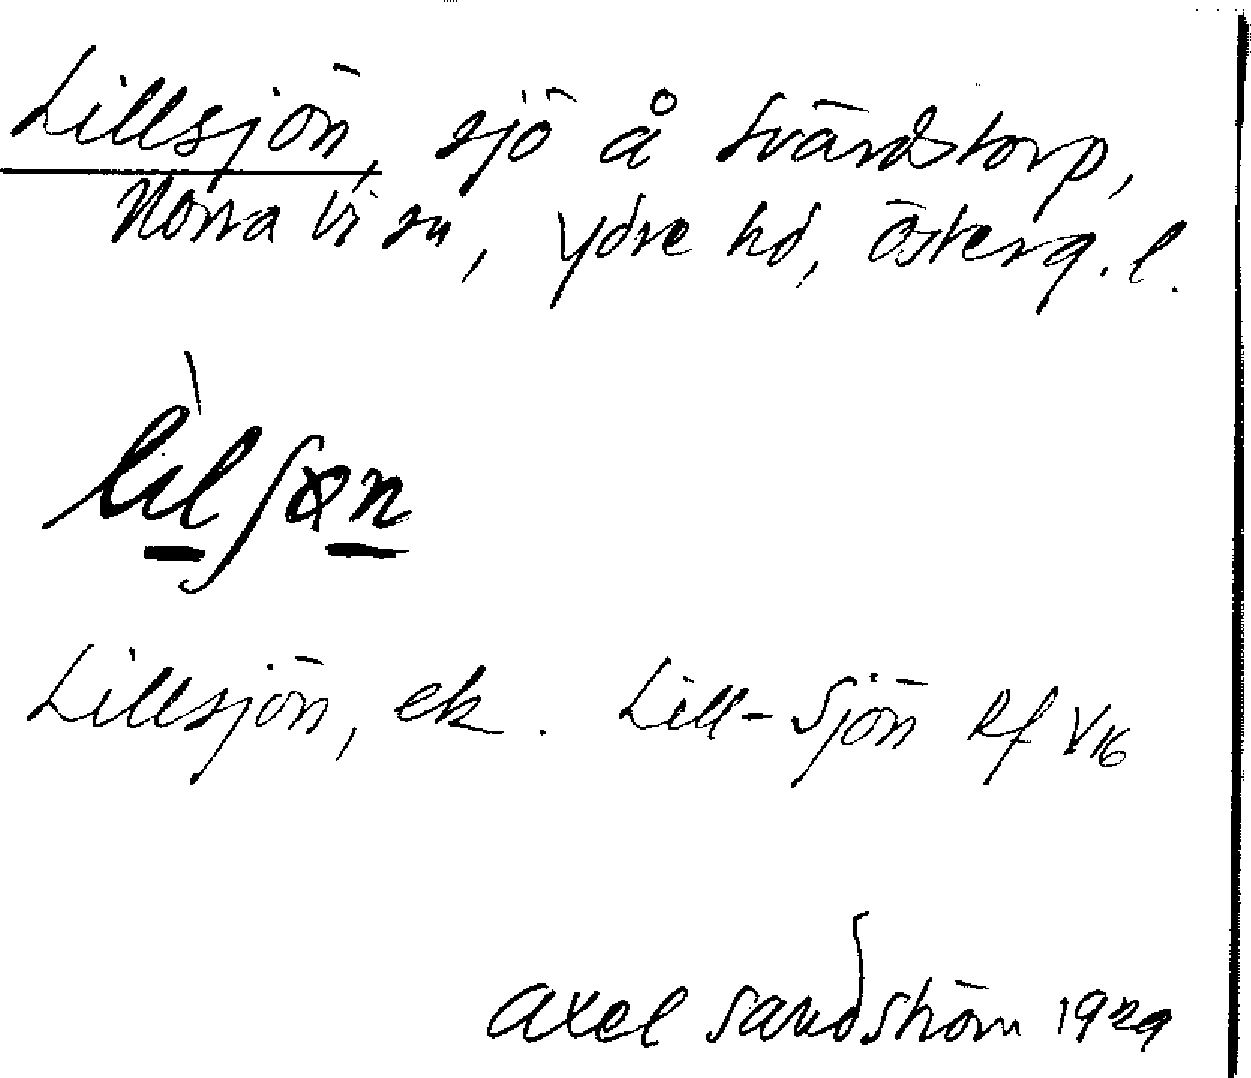 Lillsjön, sjö å Svärdstorp,
Norra Vi sn, Ydre hd, Österg. l.
lìlʃøn
Lillsjön, ek. Lill-Sjön Rf V16
Axel Sandström 1929